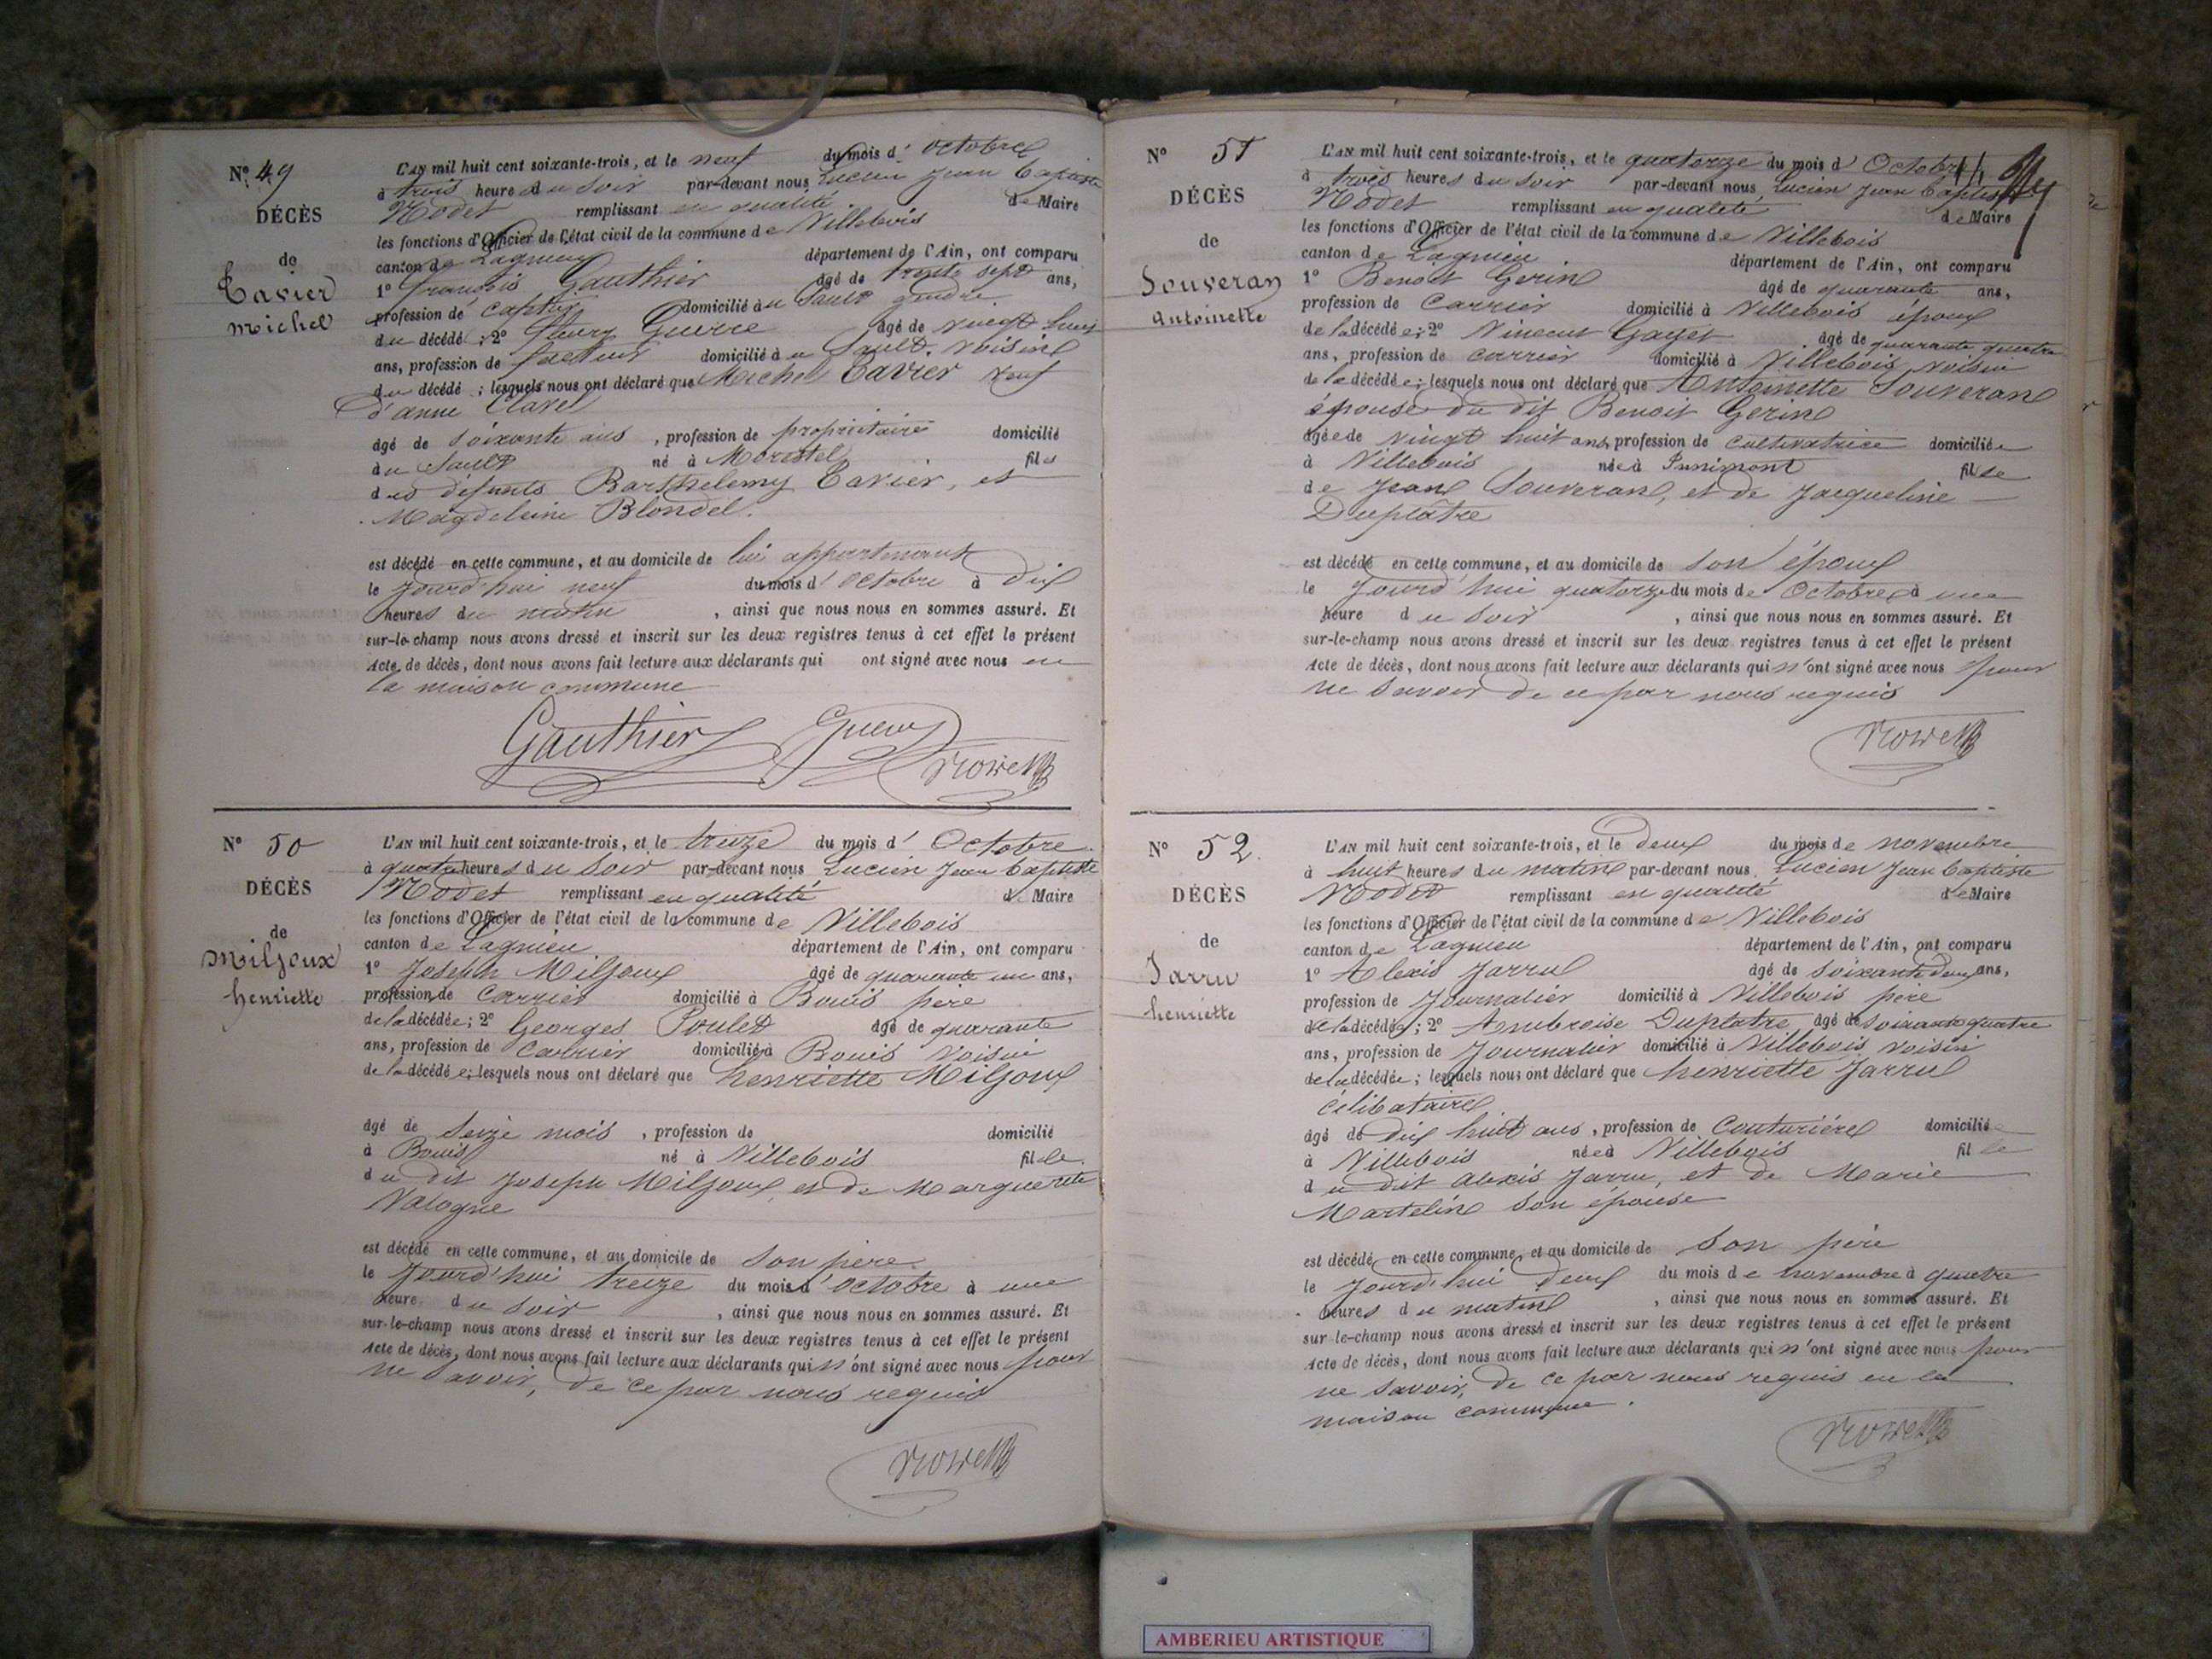 N° 49
DÉCÈS
de
Tavier
michel
L'AN mil huit cent soixante-trois, et le neuf du mois d' octobre
à trois heures du soir par-devant nous Lucien Jean baptiste
Rodet remplissant en qualité de Maire
les fonctions d'Officier de l'état civil de la commune de Villebois
canton de Lagnieu département de l'Ain, ont comparu
1° françois Gauthier âgé de trente sept ans,
profession de domicilié au Sault gendre
du décédé ; 2° fleury Guerre âgé de vingt huit
ans, profession de facteur domicilié à u Sault. voisin
du décédé ; lesquels nous ont déclaré que Michel Tavier veuf
d'anne Clavel
âgé de soixante ans , profession de propriétaire domicilié
au Sault né à Morestel fils
des défunts Barthelemy Tavier, et
Magdeleine Blondel.
est décédé en cette commune, et au domicile de lui appartenant
le jourd'hui neuf du mois d' octobre à dix
heures du matin , ainsi que nous nous en sommes assuré. Et
sur-le-champ nous avons dressé et inscrit sur les deux registres tenus à cet effet le présent
Acte de décès, dont nous avons fait lecture aux déclarants qui ont signé avec nous en
la maison commune
Gauthier
N° 50
DÉCÈS
de
Miljoux
henriette
L'AN mil huit cent soixante-trois, et le treize du mois d' Octobre
à quatre heures du soir par-devant nous Lucien Jean baptiste
Rodet remplissant en qualité de Maire
les fonctions d'Officier de l'état civil de la commune de Villebois
canton de Lagnieu département de l'Ain, ont comparu
1° Joseph Miljoux âgé de quarante un ans,
profession de Carrier domicilié à Bouis père
de la décédée ; 2° Georges Poulet âgé de quarante
ans, profession de Carrier domicilié à Bouis voisin
de la décédée ; lesquels nous ont déclaré que henriette Miljoux
âgé de seize mois , profession de domicilié
à Bouis né à Villebois fille
du dit Joseph Miljoux et de Marguerite
Valogne
est décédé en cette commune, et au domicile de son père.
le jourd'hui treize du mois d' octobre à une
heure du soir , ainsi que nous nous en sommes assuré. Et
sur-le-champ nous avons dressé et inscrit sur les deux registres tenus à cet effet le présent
Acte de décès, dont nous avons fait lecture aux déclarants qui n'ont signé avec nous pour
ne savoir, de ce par nous requis
N° 51
DÉCÈS
de
Souveran
Antoinette
L'AN mil huit cent soixante-trois, et le quatorze du mois d' Octobre
à trois heures du soir par-devant nous Lucien Jean baptiste
Rodet remplissant en qualité de Maire
les fonctions d'Officier de l'état civil de la commune de Villebois
canton de Lagnieu département de l'Ain, ont comparu
1° Benoit Gerin âgé de quarante ans,
profession de Carrier domicilié à Villebois époux
de la décédée ; 2° Vincent Gayet âgé de quarante quatre
ans, profession de carrier domicilié à Villebois voisin
de la décédée ; lesquels nous ont déclaré que Antoinette Souveran
épouse du dit Benoit Gerin
âgée de vingt huit ans, profession de cultivatrice domiciliée
à Villebois née à fille
de Jean Souveran, et de Jacqueline
Duplâtre
est décédé en cette commune, et au domicile de son époux
le jourd'hui quatorze du mois de Octobre à une
heure du soir , ainsi que nous nous en sommes assuré. Et
sur-le-champ nous avons dressé et inscrit sur les deux registres tenus à cet effet le présent
Acte de décès, dont nous avons fait lecture aux déclarants qui n'ont signé avec nous pour
ne savoir de ce par nous requis
N° 52.
DÉCÈS
de
Jarru
henriette
L'AN mil huit cent soixante-trois, et le deux du mois de novembre
à huit heures du matin par-devant nous Lucien Jean baptiste
Rodet remplissant en qualité de Maire
les fonctions d'Officier de l'état civil de la commune de Villebois
canton de Lagnieu département de l'Ain, ont comparu
1° Alexis Jarru âgé de soixante deux ans,
profession de Journalier domicilié à Villebois père
de la décédée ; 2° Ambroise Duplatre âgé de soixante quatre
ans, profession de Journalier domicilié à Villebois voisin
de la décédée ; lesquels nous ont déclaré que henriette Jarru
célibataire
âgé de dix huit ans , profession de Couturière domiciliée
à Villebois née à Villebois fille
du dit alexis Jarru, et de Marie
Martelin son épouse
est décédé en cette commune, et au domicile de son père
le jourd'hui deux du mois de novembre à quatre
heures du matin , ainsi que nous nous en sommes assuré. Et
sur le-champ nous avons dressé et inscrit sur les deux registres tenus à cet effet le présent
Acte de décès, dont nous avons fait lecture aux déclarants qui n'ont signé avec nous pour
ne savoir, de ce par nous requis en la
maison commune.
AMBERIEU ARTISTIQUE